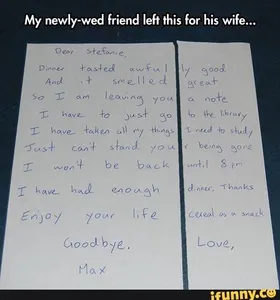 My newly-wed friend left this for his wife...
Dear Stefanie,
Dinner tasted awfully good
And it smelled great
So I am leaving you a note
I have to just go to the library
I have taken all my things I need to study
Just can't stand your being gone
I won't be back until 8 pm
I have had enough dinner, Thanks
Enjoy your life cereal as a snack
Goodbye. Love,
Max
ifunny.co